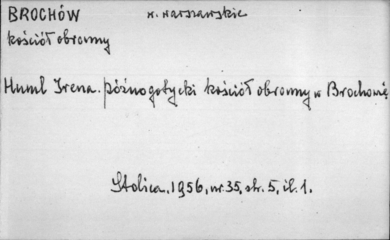 BROCHÓW w. warszawskie
kościół obronny
Huml Irena. późnogotycki kościół obronny w Brochowie
Stolica, 1956, nr. 35, str. 5, il. 1.